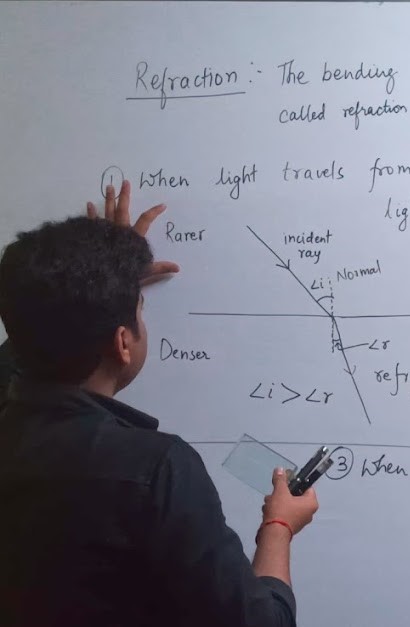 Refraction :- The bending
called refraction
① When light travels from
lig
Rarer
incident
ray
∠i Normal
∠r
Denser
refr
∠i > ∠r
③ When